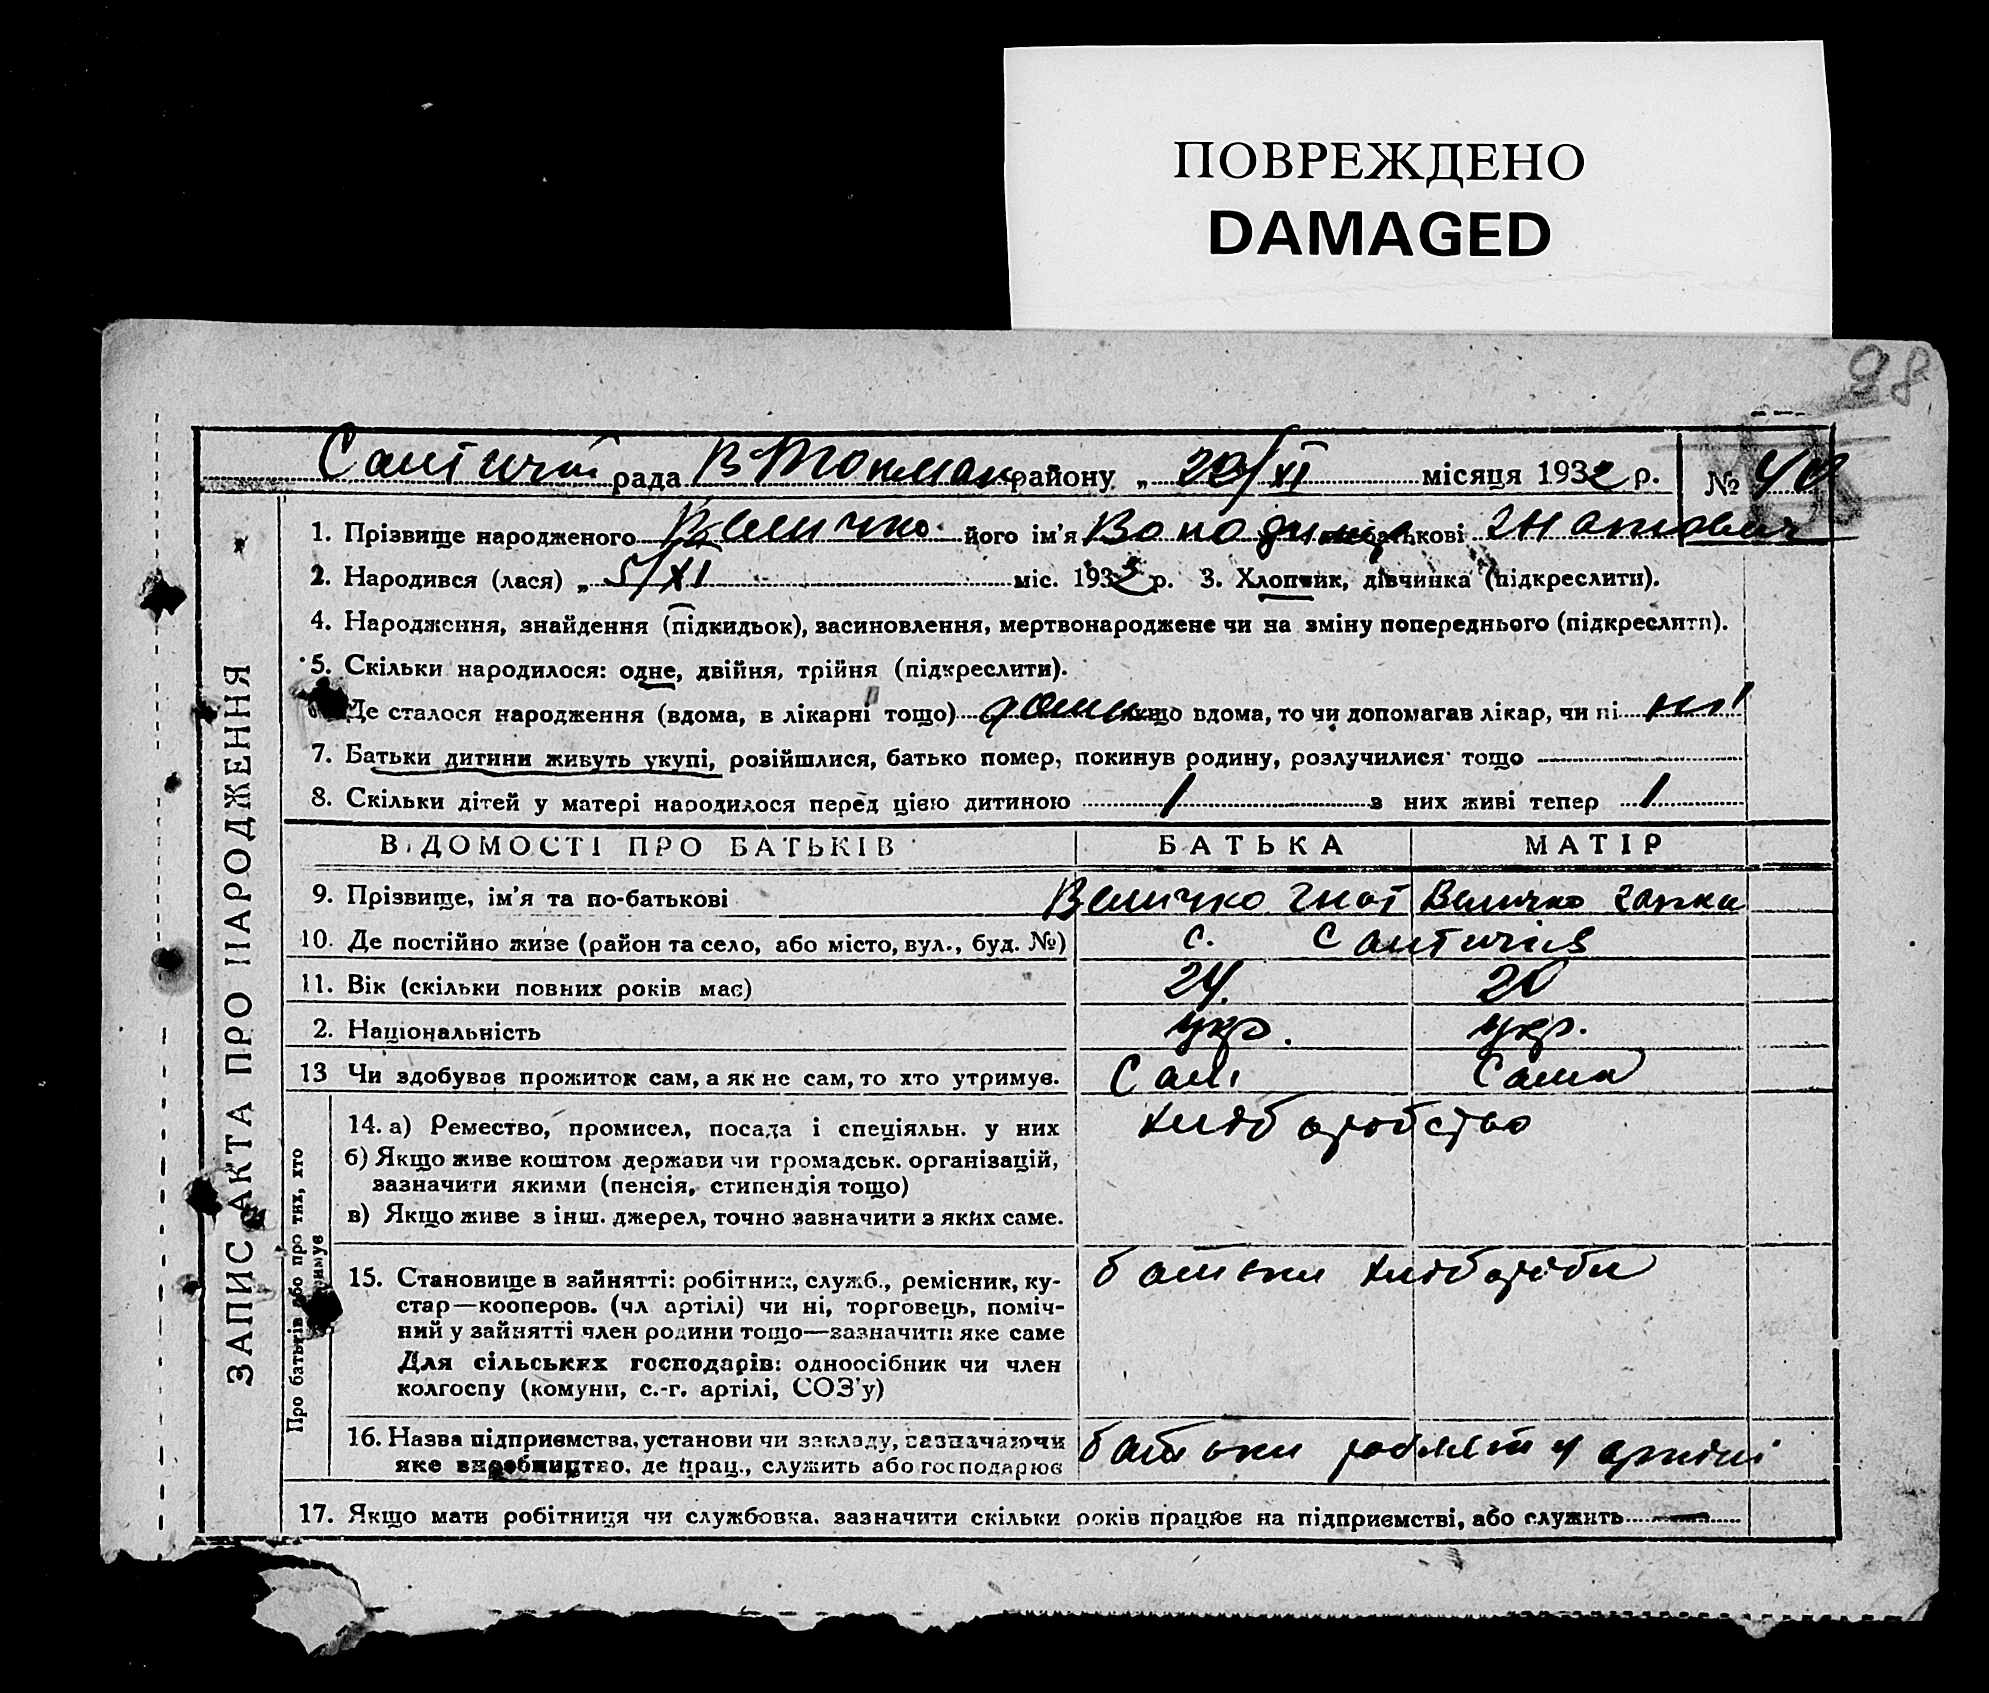 ПОВРЕЖДЕНО
DAMAGED
98
рада В Токмак району „ 20/XI місяця 1932 р. № 40
ЗАПИС АКТА ПРО НАРОДЖЕННЯ
1. Прізвище народженого Величко його ім'я Володимир батькові Гнатович
2. Народився (лася) „ 5/XI міс. 1932 р. 3. Хлопчик, дівчинка (підкреслити).
4. Народження, знайдення (підкидьок), засиновлення, мертвонароджене чи на зміну попереднього (підкреслити).
5. Скільки народилося: одне, двійня, трійня (підкреслити).
Де сталося народження (вдома, в лікарні тощо) дома якщо вдома, то чи допомагав лікар, чи ні ні
7. Батьки дитини живуть укупі, розійшлися, батько помер, покинув родину, розлучилися тощо
8. Скільки дітей у матері народилося перед цією дитиною 1 з них живі тепер 1
ВІДОМОСТІ ПРО БАТЬКІВ БАТЬКА МАТІР
9. Прізвище, ім'я та по-батькові Величко Гнат Величко Ганна
10. Де постійно живе (район та село, або місто, вул., буд. №) с.
11. Вік (скільки повних років має) 24. 20
2. Національність укр. укр.
13 Чи здобував прожиток сам, а як не сам, то хто утримув. Сам Сама
Про батьків або про тих, хто
14. а) Ремество, промисел, посада і спеціяльн. у них хліборобство
б) Якщо живе коштом держави чи громадськ. організацій,
зазначити якими (пенсія, стипендія тощо)
в) Якщо живе з інш. джерел, точно зазначити з яких саме.
15. Становище в зайнятті: робітник, служб., ремісник, ку- батьки хлібороби
стар—кооперов. (чл артілі) чи ні, торговець, поміч-
ний у зайнятті член родини тощо—зазначити яке саме
Для сільських господарів: одноосібник чи член
колгоспу (комуни, с.-г. артілі, СОЗ'у)
16. Назва підприємства, установи чи закладу, зазначаючи батьки робллят у артілі
яке виробництво, де прац., служить або господарює
17. Якщо мати робітниця чи службовка, зазначити скільки років працює на підприємстві, або служить —